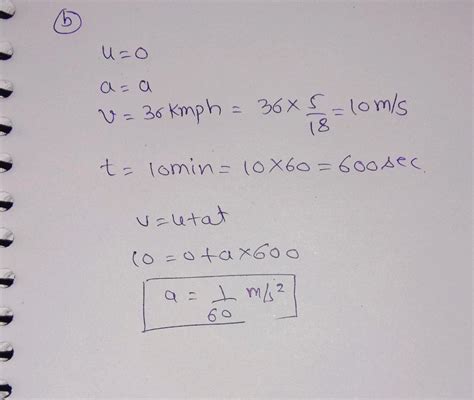 b
u=0
a=a
v = 36 kmph = 36 × 5/18 = 10 m/s
t = 10min = 10×60 = 600 sec.
v=u+at
10 = 0+a×600
a = 1/60 m/s²